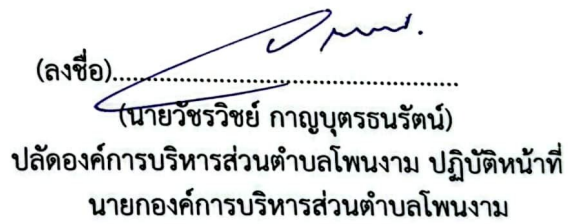 (ลงชื่อ)........................................................
(นายวัชรวิชย์ กาญบุตรธนรัตน์)
ปลัดองค์การบริหารส่วนตำบลโพนงาม ปฏิบัติหน้าที่
นายกองค์การบริหารส่วนตำบลโพนงาม